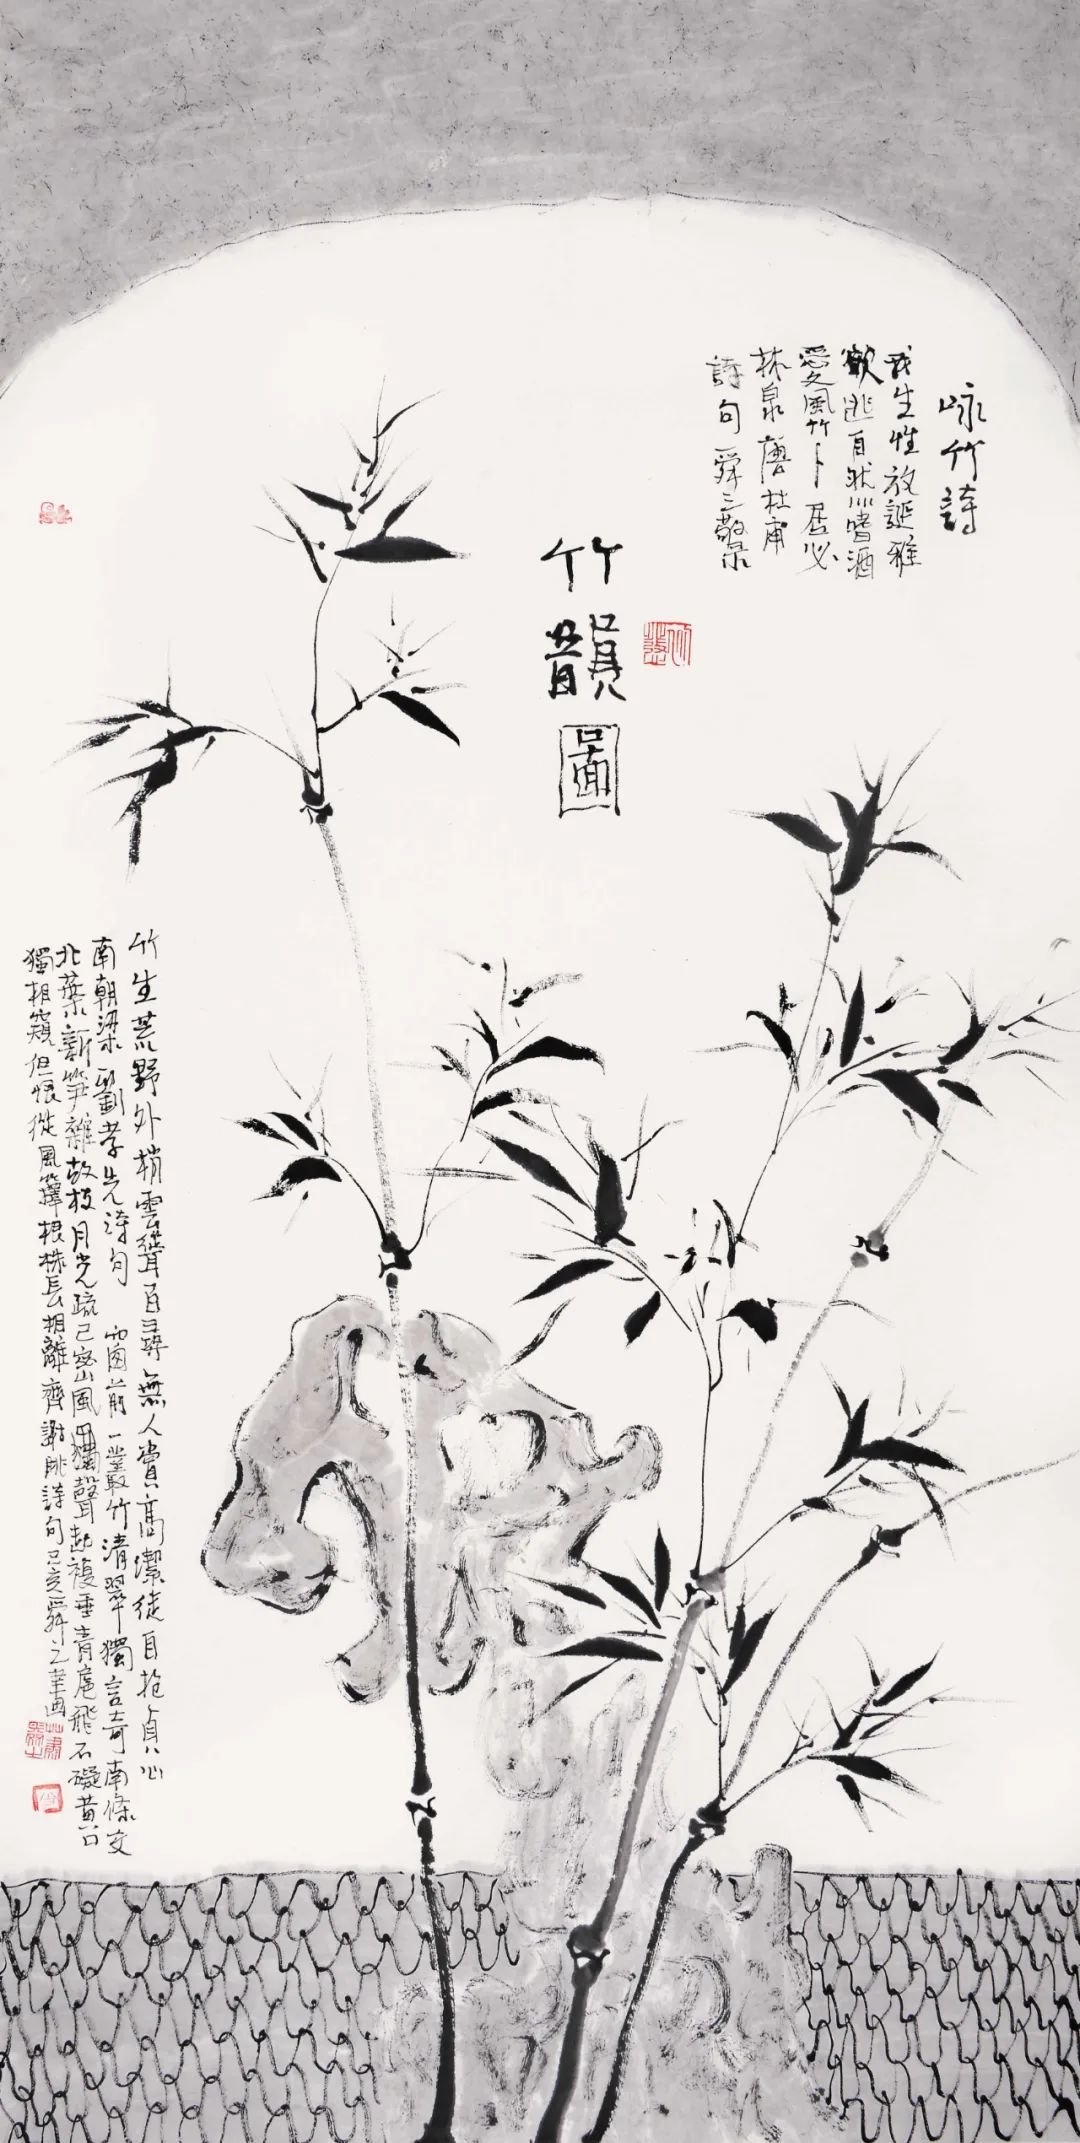 咏竹詩
我生性放誕雅
欲逃自然嗜酒
愛風竹卜居必
林泉唐杜甫
詩句舜之敬录
竹韻圖
竹生荒野外梢雲聳百尋無人賞高潔徒自抱貞心
南朝梁劉孝先詩句 窗前一叢竹清翠獨言奇南條交
北葉新笋雜故枝月光疏已密風聲起複垂青扈飛不礙黄口
獨相窺但恨從風籜根株長相離齊謝眺詩句己亥舜之画